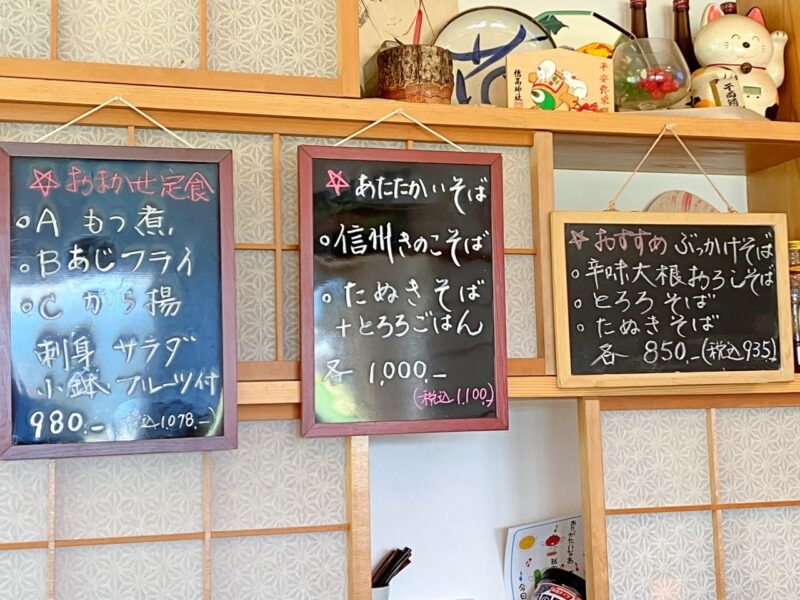 ☆おまかせ定食
○A もつ煮
○B あじフライ
○C から揚
刺身 サラダ
小鉢 フルーツ付
980.- 税込1,078.-)
☆あたたかいそば
○信州きのこそば
○たぬきそば
+とろろごはん
各 1,000.-
(税込1,100.)
☆おすすめ ぶっかけそば
○辛味大根おろしそば
○とろろそば
○たぬきそば
各 850.-(税込935.)
平安弥栄
穂高神社
ありがたいなあ